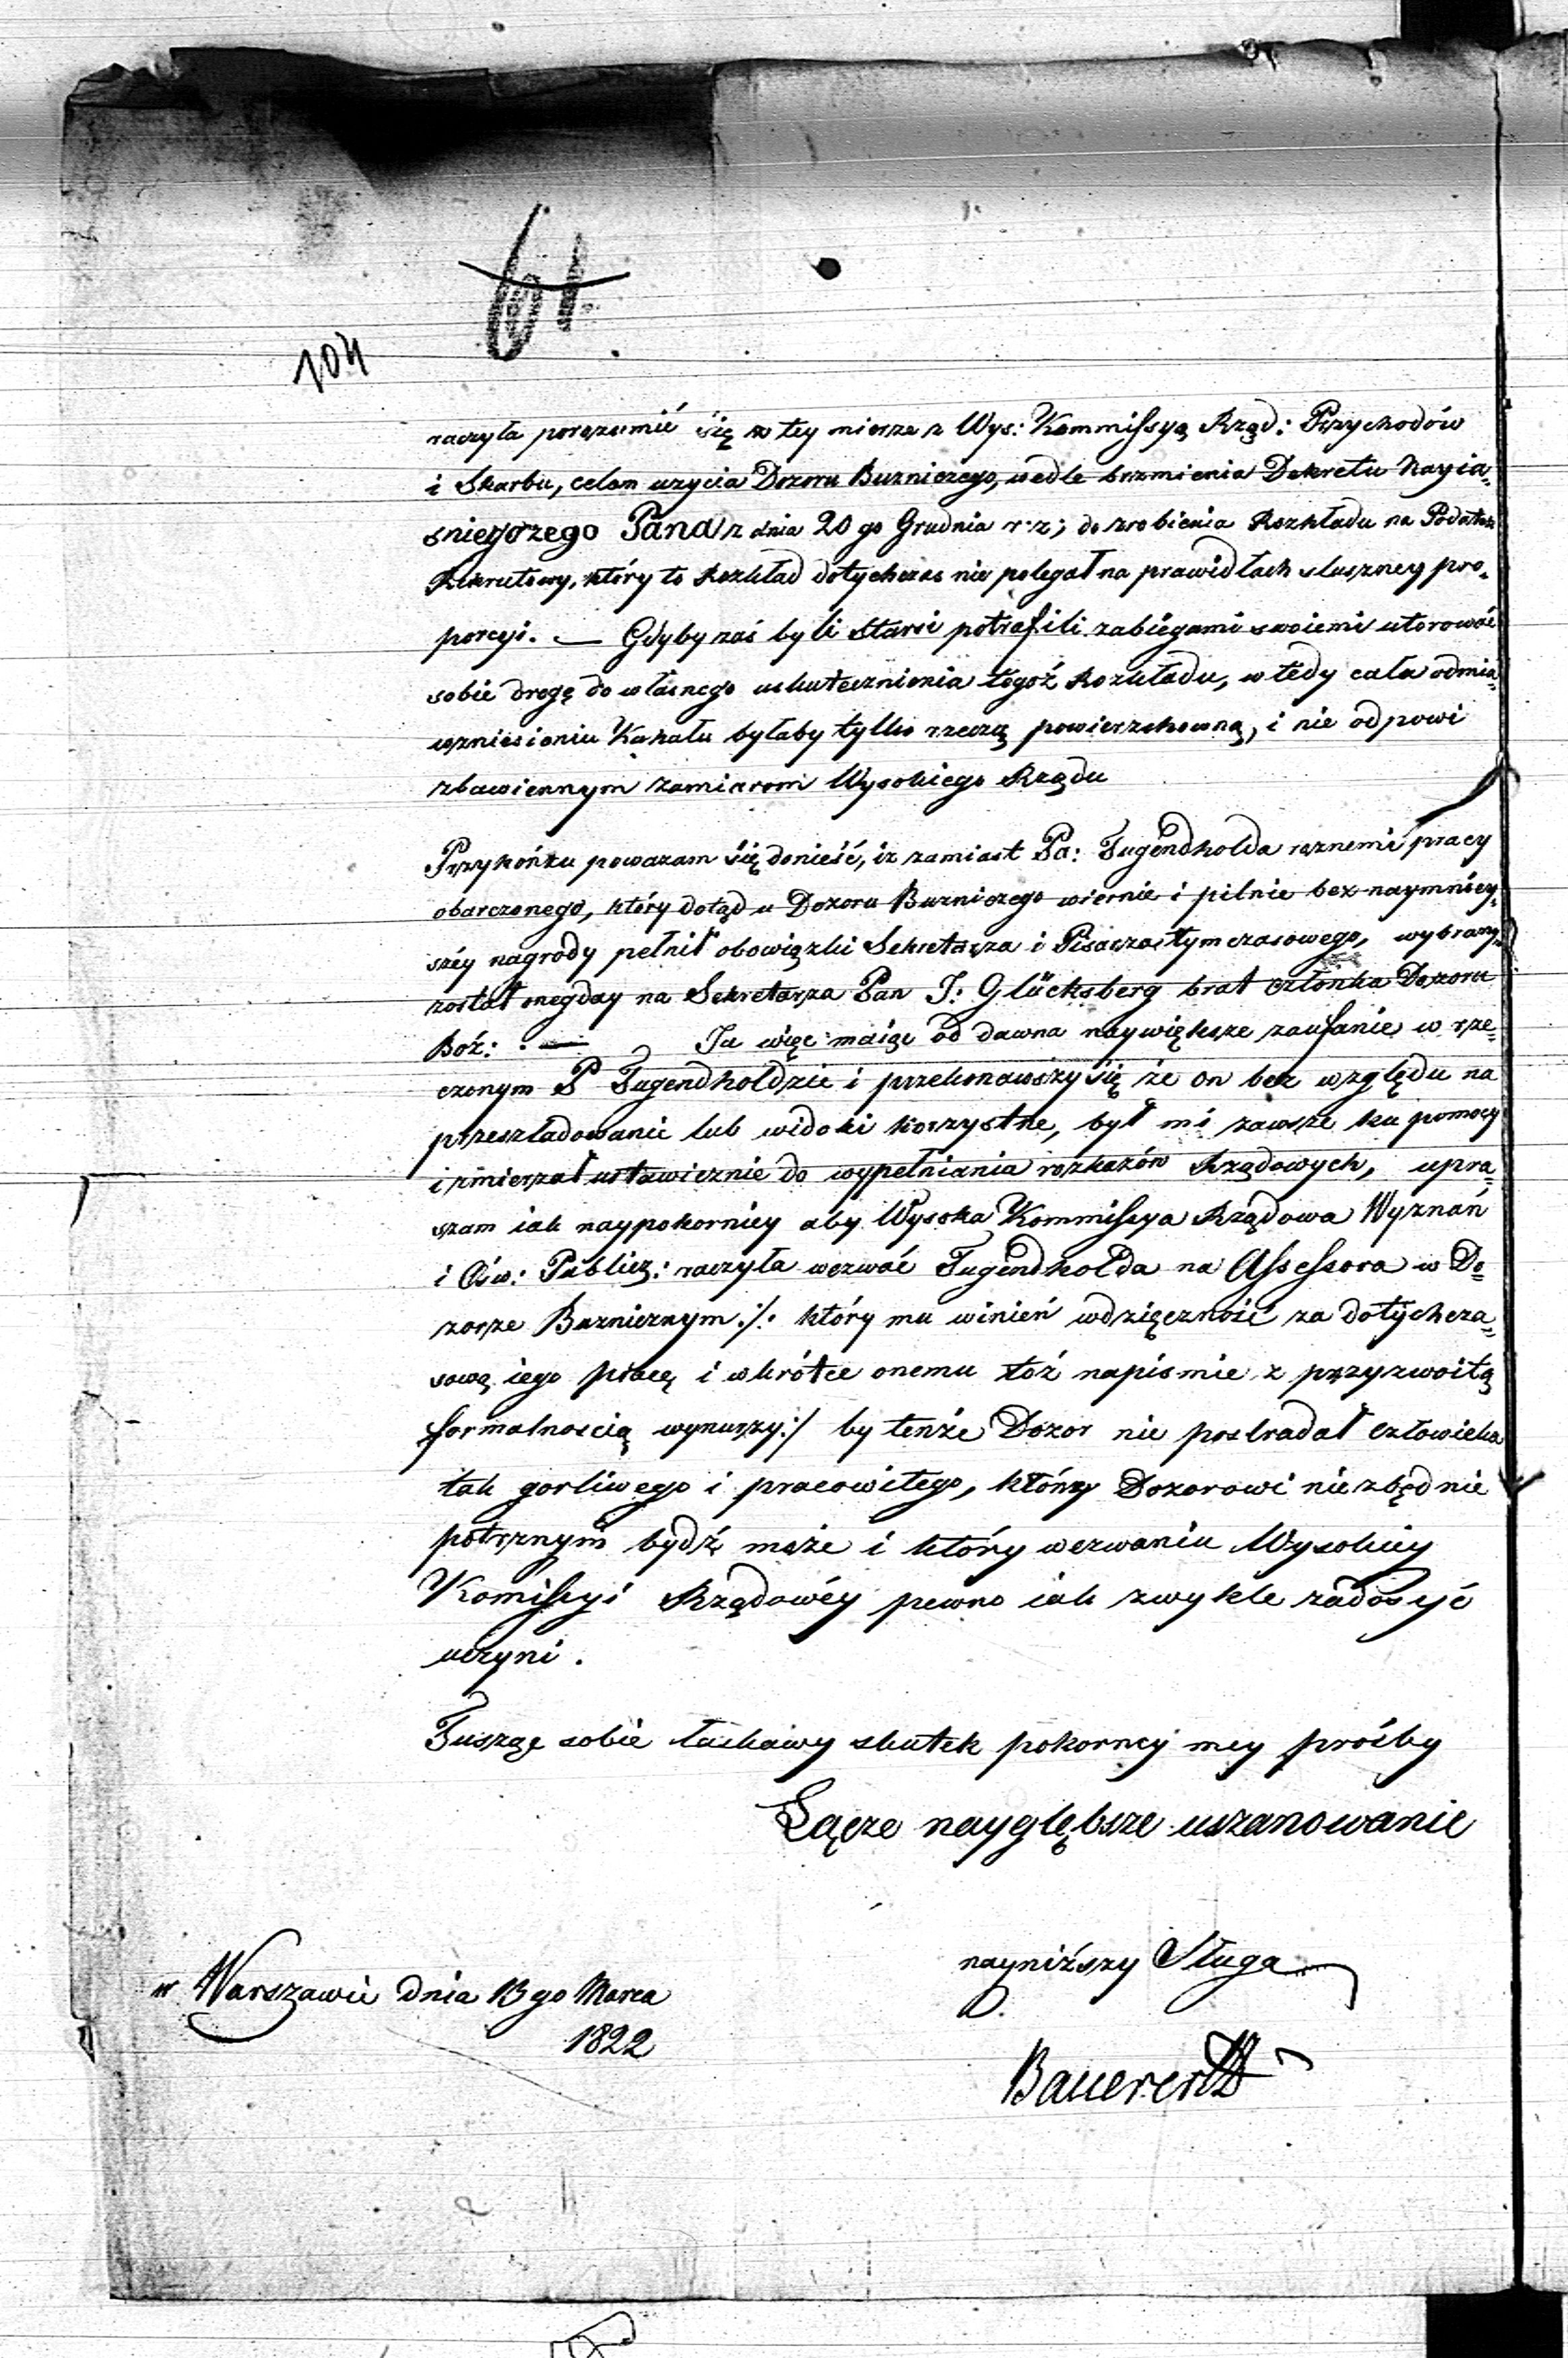 61
104
raczyła porozumić się w tey mierze z Wys: Kommissyą Rząd: Przychodów
i Skarbu, celem uzycia Dozoru Buzniczego, wedle brzmienia Dekretu Nayia„
śnieyszego Pana z dnia 20 go Grudnia r: z; do zrobienia Rozkładu na Podatek
Rekrutowy, który to Rozkład dotychczas nie polegał na prawidłach słuszney pro„
porcyi. — Gdyby zaś byli Starsi potrafili zabiegami swoiemi utorować
sobie drogę do własnego uskutecznienia tegoż Rozkładu, wtedy cała odmia„
wzniesieniu Kahału byłaby tylko rzeczą powierzchowną, i nie odpowi
zbawiennym zamiarom Wysokiego Rządu
Przykońzu powazam się donieść, iz zamiast Pa: Tugendholda roznemi pracy
obarczonego, który dotąd u Dozoru Buzniczego wiernie i pilnie bez naymniey„
széy nagrody pełnił obowiązki Sekretarza i Pisarza tymczasowego, wybrany
został onegday na Sekretarza Pan J: Glücksberg brat członka Dozoru
Boż: . — Ja więc maiąc od dawna naywiększe zaufanie w rze„
czonym P Tugendholdzie i przekonawszy się że on bez względu na
przeszladowanie lub widoki korzystne, był mi zawsze ku pomocy
i zmierzał ustawicznie do wypełniania rozkazów Rządowych, upra„
szam iak naypokorniey aby Wysoka Kommissya Rządowa Wyznań
i Ośw: Publicz: raczyła wezwać Tugendholda na Assessora w Do„
zorze Buzniczym /: który mu winień wdzięczność za dotychcza„
sową iego pracę i wkrótce onemu toż napismie z przyzwoitą
formalnoscią wynurzy :/ by tenże Dozor nie postradał człowieka
tak gorliwego i pracowitego, który Dozorowi niezbędnie
potrznym bydź może i który wezwaniu Wysokiey
Komissyi Rządowéy pewno iak zwykle zadosyć
uczyni .
Tusząc sobie łaskawy skutek pokorney mey prośby
Łącze naygłębsze uszanowanie
nayniższy Sługa
w Warszawie dnia 13 go Marca
1822